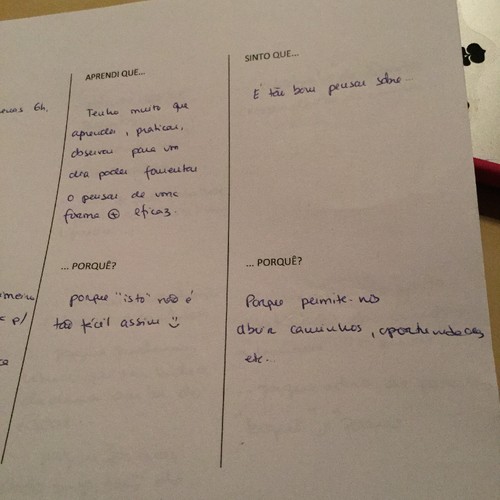 enas 6h.
APRENDI QUE...
Tenho muito que
aprender, praticar,
observar para um
dia poder fomentar
o pensar de uma
forma ⊕ eficaz.
... PORQUÊ?
porque "isto" não é
tão fácil assim
SINTO QUE...
É tão bom pensar sobre...
... PORQUÊ?
Porque permite-nos
abrir caminhos, oportunidades,
etc...
p/